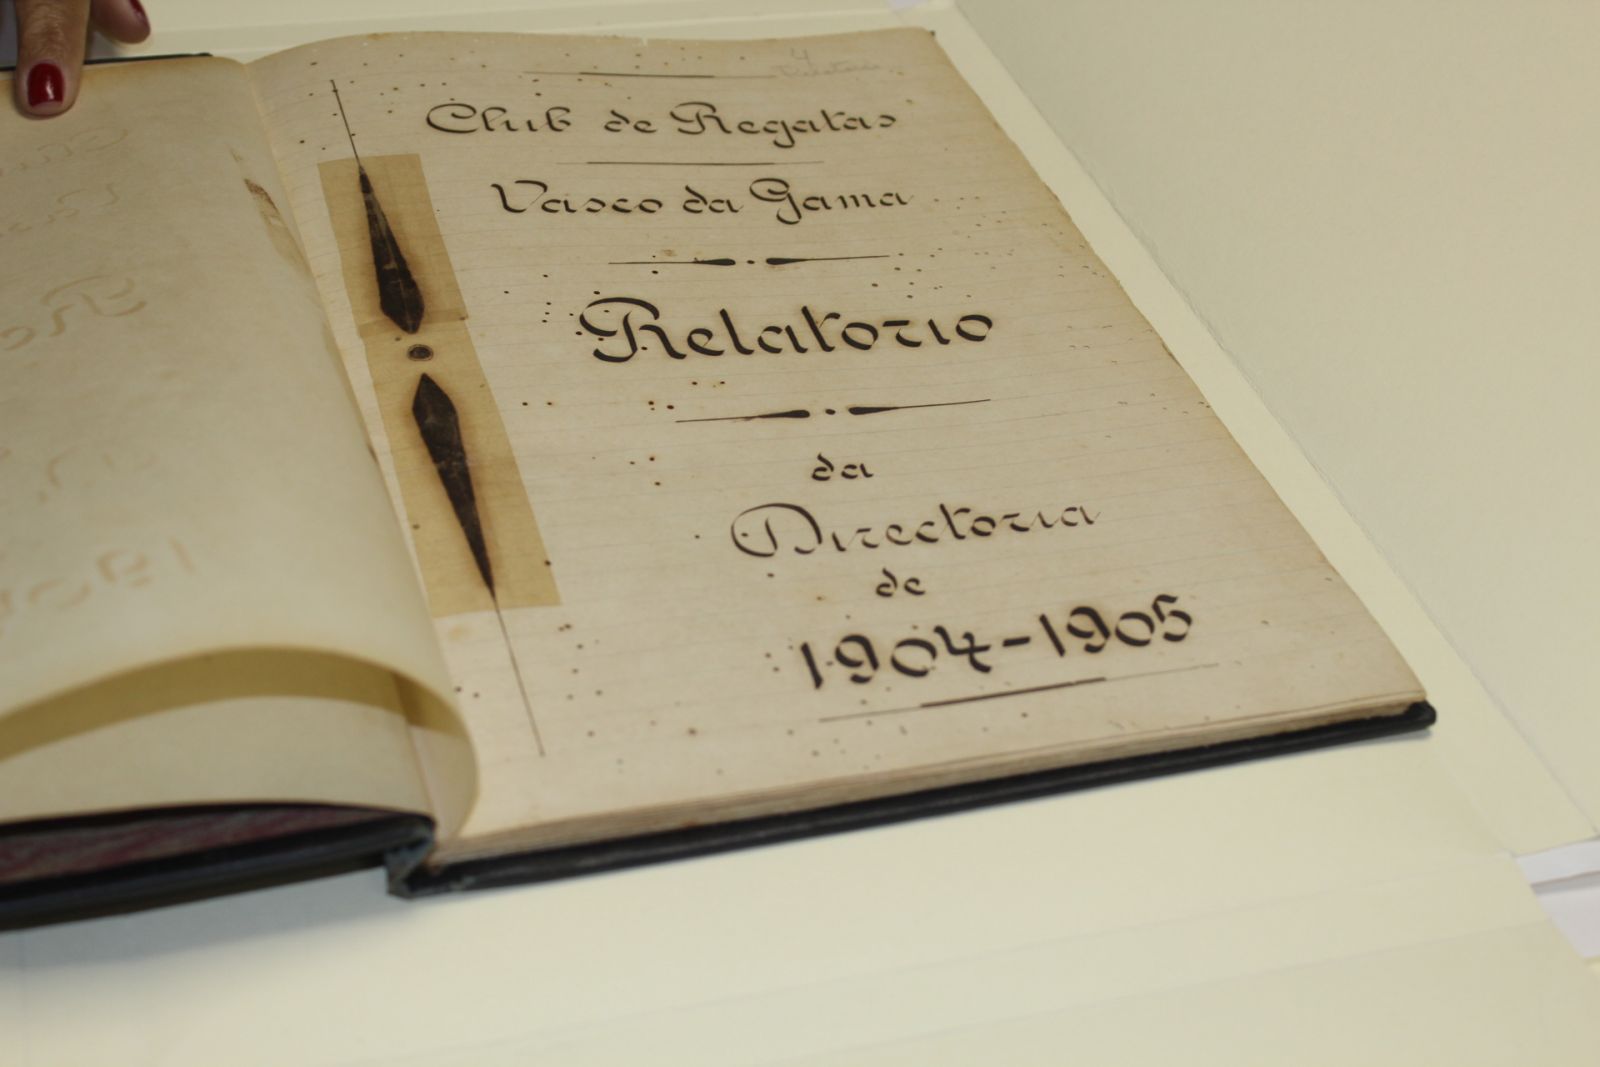 Club de Regatas
Vasco da Gama
Relatorio
da
Directoria
de
1904-1905